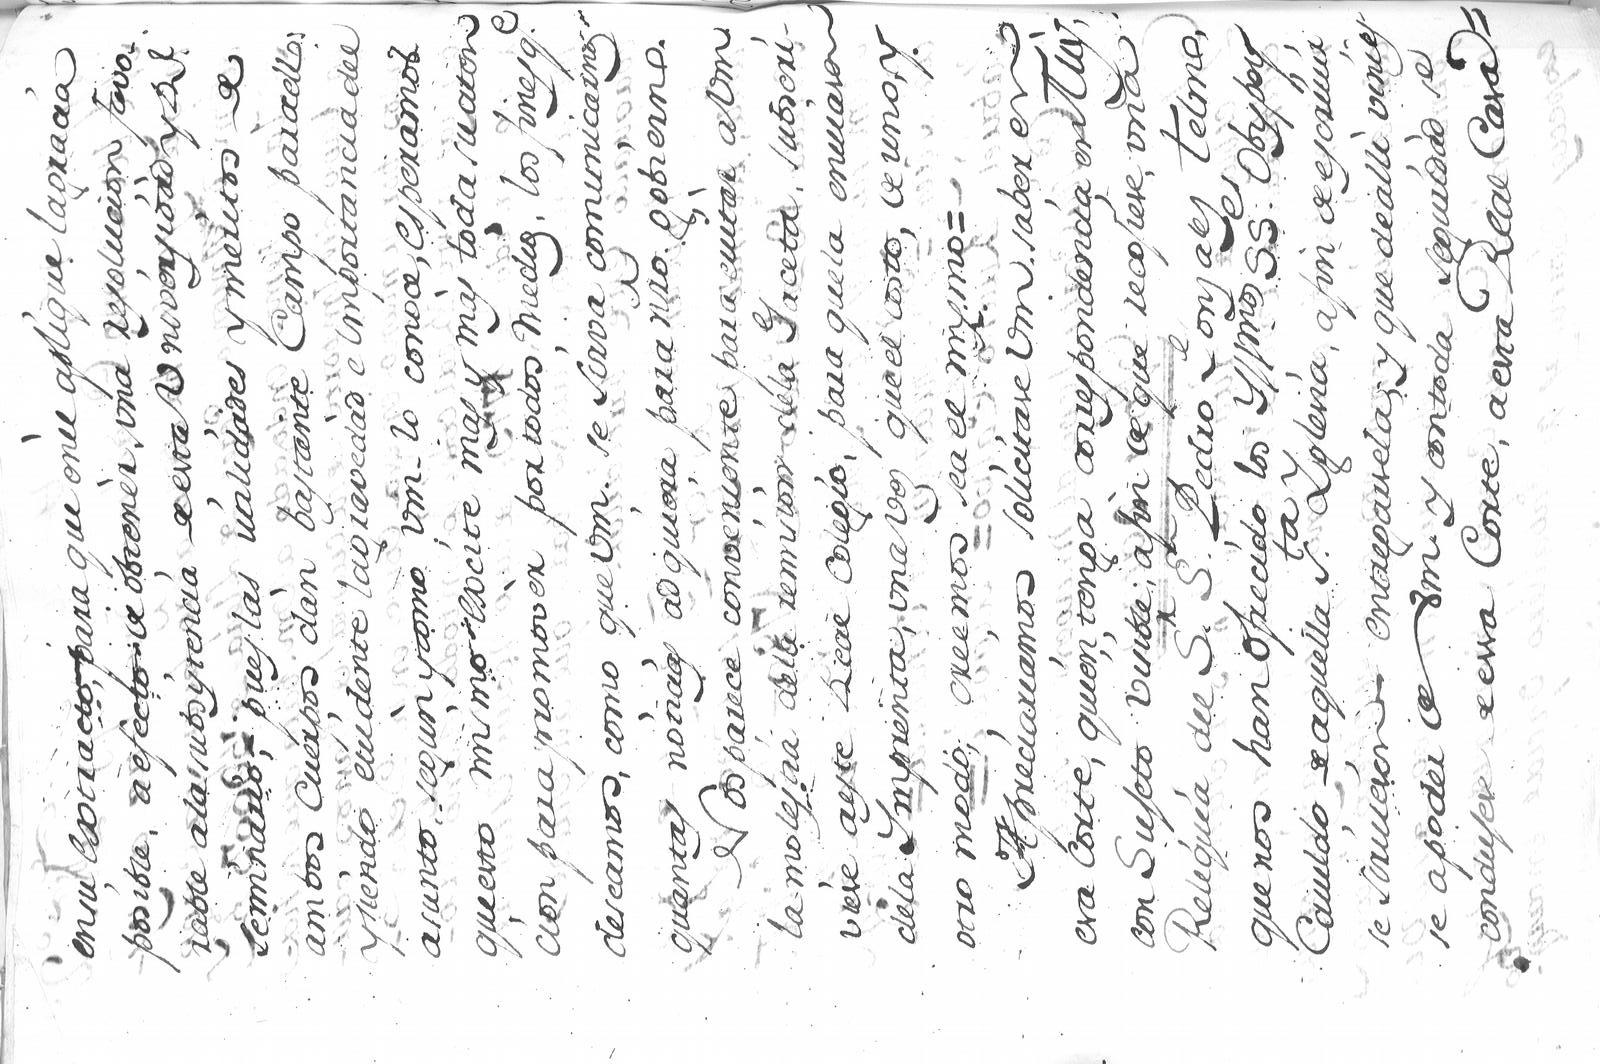 en su Contracto, para que on él aplique la gracia
posible, a efecto de obtener, una resolucion favo-
rable a la subsystencia de esta Universidad, y del
seminario, pues las utilidades y meritos de
ambos Cuerpos dán bastante Campo para ello:
y siendo evidente la gravedad e importancia del
asunto, según y como Vm. lo conoce, esperamos
que esto mismo excite mas y mas toda su aten
cion para promover por todos medios, los fines q.e
deseamos, como que Vm. se sirva comunicarnos
quantas noticias adquiera para ntro. Gobierno.
Nos parece conveniente para evitar a Vm
la molestia dela remision dela Gaceta, subscri-
viese a este Real Colegio, para que la enviasen
dela Imprenta, una vez que el costo, de uno, y
otro modo, creemos sea el mysmo=
Apreciariamos solicitase Vm. saber en
esa Corte, quien tenga correspondencia en Tuy,
con Sujeto vuste, a fin de que recogiese, una
Reliquia del S. S.r Pedro Gonzales Telmo,
que nos han ofrecido los Yllmos SS.es Obyspo y
Cavildo de aquella S.ta Yglesia, a fin de que una
se sirviesen entregarsela; y que de allí viniese
a poder de Vm. y con toda seguridad se
condujese de essa Corte, a esta Real Casa=